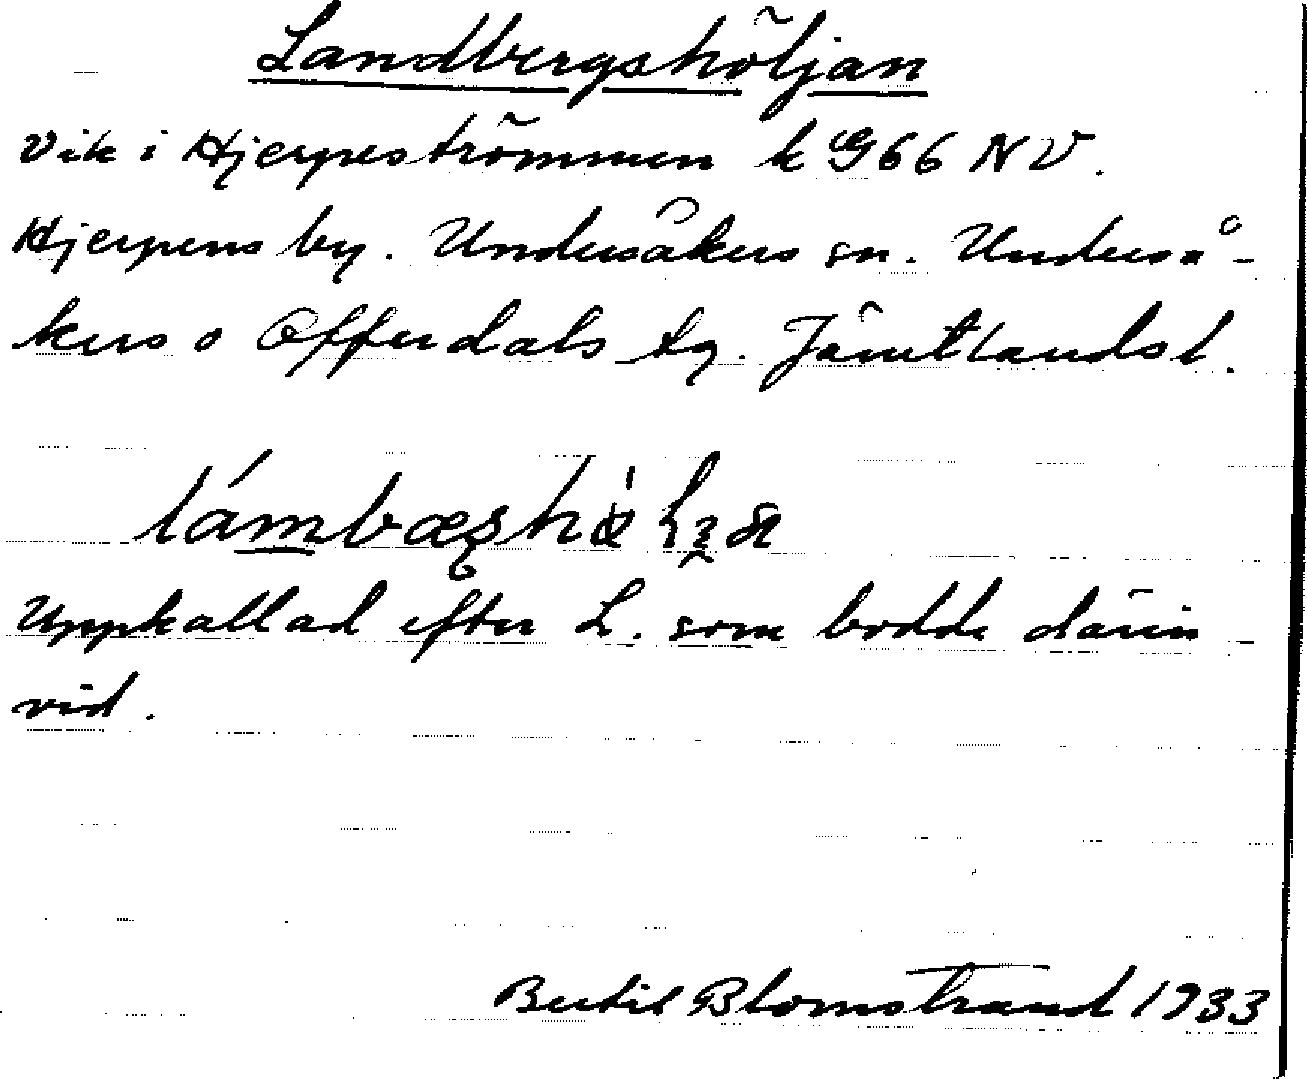 Landbergshöljan
Vik i Hjerpeströmmen k G66 NV.
Hjerpens by. Undersåkers sn. Underså-
kers o Offerdals tg. Jämtlands l.
Uppkallad efter L. som bodde därin-
vid.
Bertil Blomstrand 1933